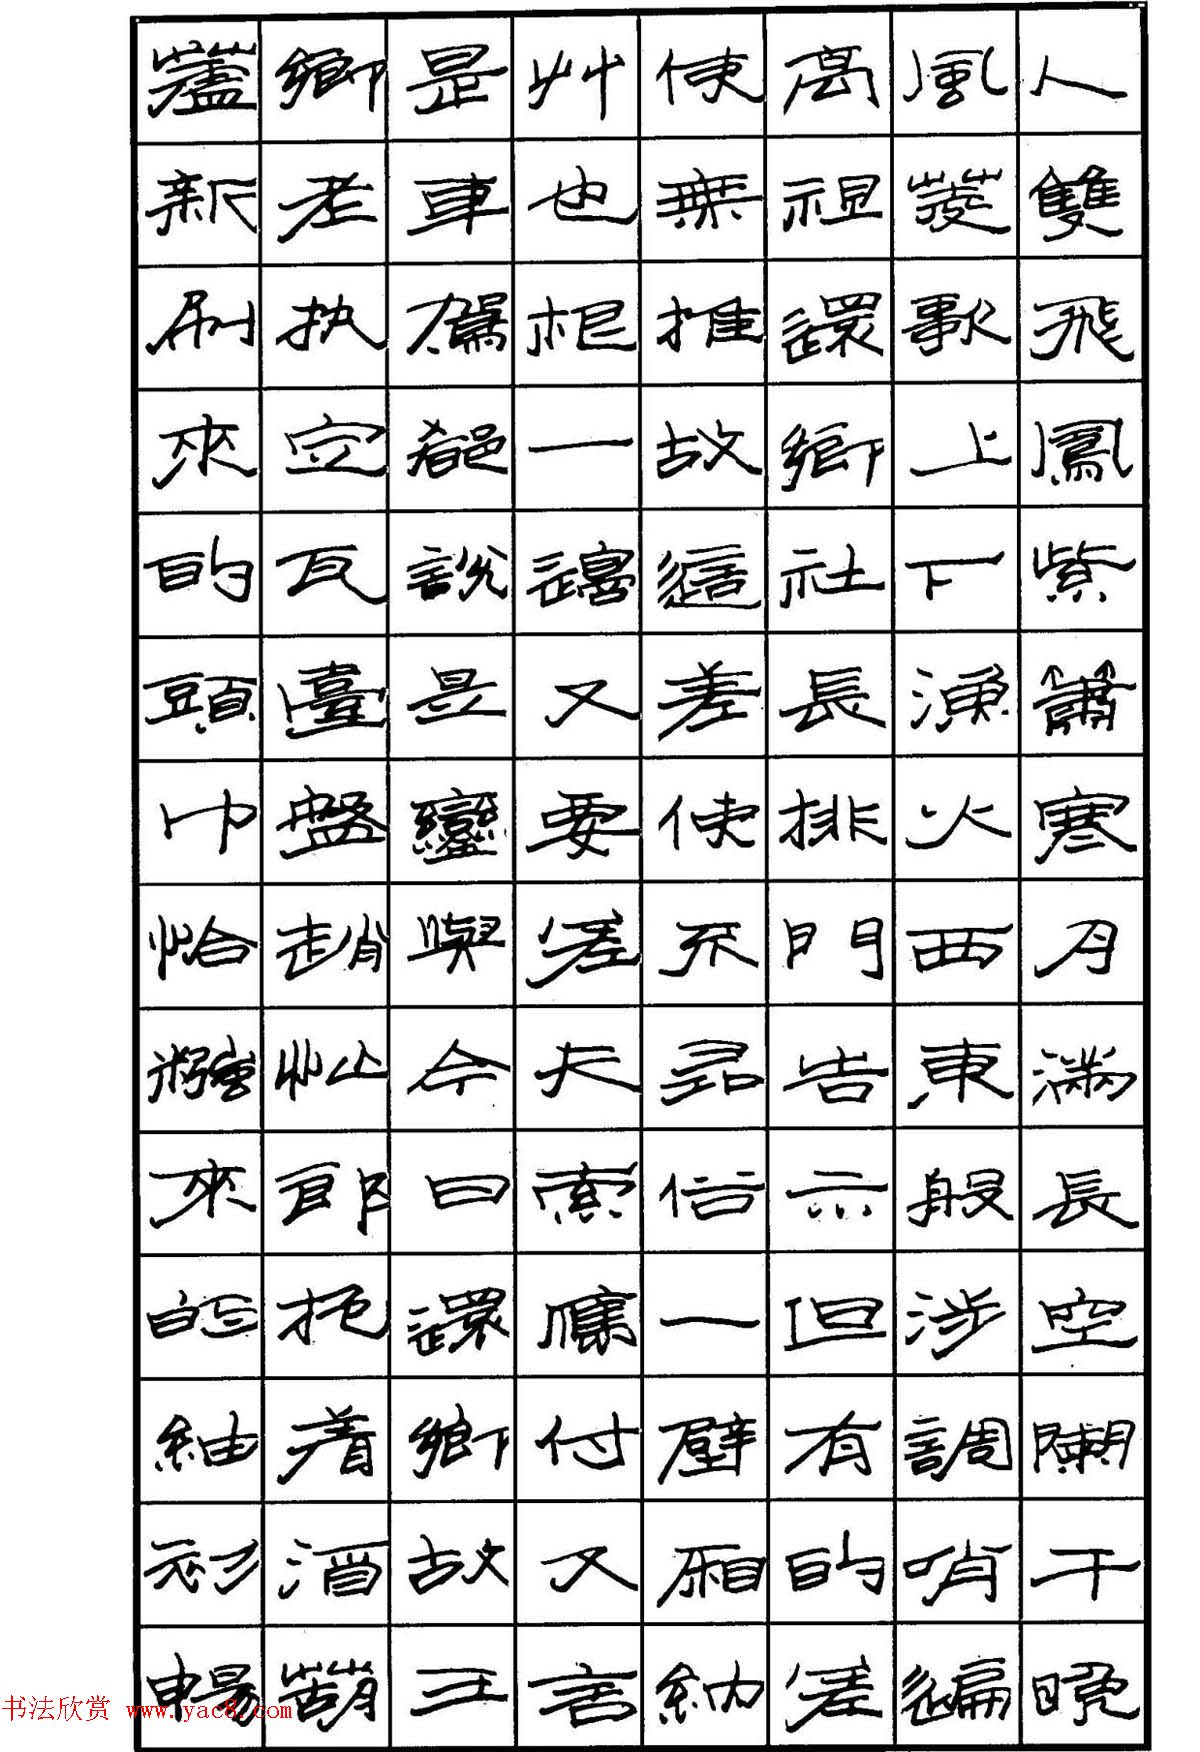 人雙飛鳳紫簫寒月滿長空闌干晚
風菱歌上下漁火西東般涉調哨遍
高祖還鄉社長排門告示但有的差
使無推故這差使不尋俗一壁廂納
艸也根一邊又要差夫索應付又言
是車駕都說是鑾輿今日還鄉故王
鄉老执定瓦臺盤趙忙郎抱着酒葫
蘆新刷來的頭巾恰糨來的紬衫暢
书法欣赏 www.yac8.com